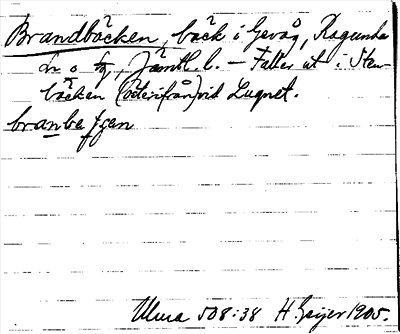 Brandbäcken, bäck i Gevåg, Ragunda
sn o tg, Jämtl. l. – Faller ut i Sten-
bäcken (österifrån) vid Lugnet.
branbe
Ulma 508:38 H. Geijer 1905.